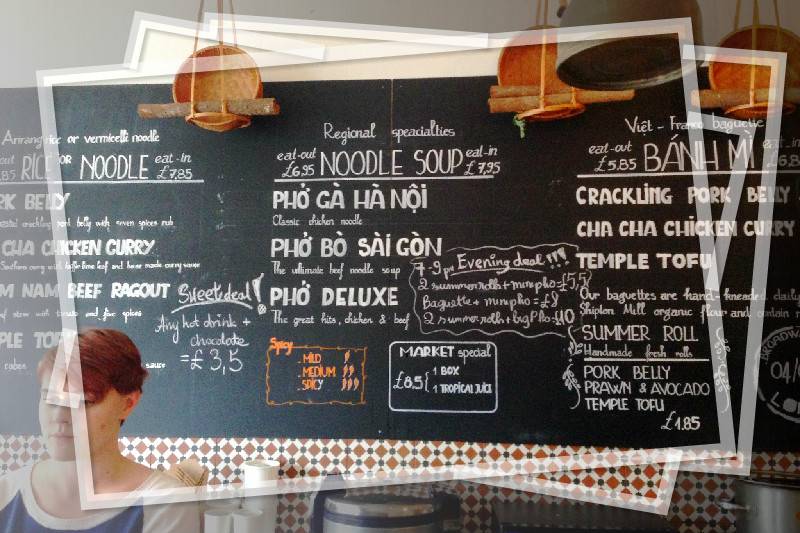 Arranging rice or vermicelli noodle
RICE OR NOODLE eat-in £7,85
RK BELLY
roasted crackling pork belly with seven spices rub
CHA CHICKEN CURRY
Southern curry with kaffir lime leaf and home made curry sauce
M NAM BEEF RAGOUT
beef stew with tomato and five spices
PLE TOFU
cubes
sauce
Sweet deal!
Any hot drink +
chocolate
= £3,5
Regional speacialties
eat-out £6,95 NOODLE SOUP eat-in £7,95
PHỞ GÀ HÀ NỘI
Classic chicken noodle
PHỞ BÒ SÀI GÒN
The ultimate beef noodle soup
PHỞ DELUXE
The great hits, chicken & beef
7-9 pm Evening deal!!!
2 summer rolls + mini pho = £5,5
Baguette + mini pho = £8
2 summer rolls + big Pho = £10
Spicy
. MILD
. MEDIUM
. SPICY
MARKET special
£8,5
1 BOX
1 TROPICAL JUICE
Việt - Franco baguette
eat-out £5,85 BÁNH MÌ £6,8
CRACKLING PORK BELLY
CHA CHA CHICKEN CURRY
TEMPLE TOFU
Our baguettes are hand-kneaded daily
Shipton Mill organic flour and contain
SUMMER ROLL
Handmade fresh rolls
PORK BELLY
PRAWN & AVOCADO
TEMPLE TOFU
£1.85
BROADW
04/
LO